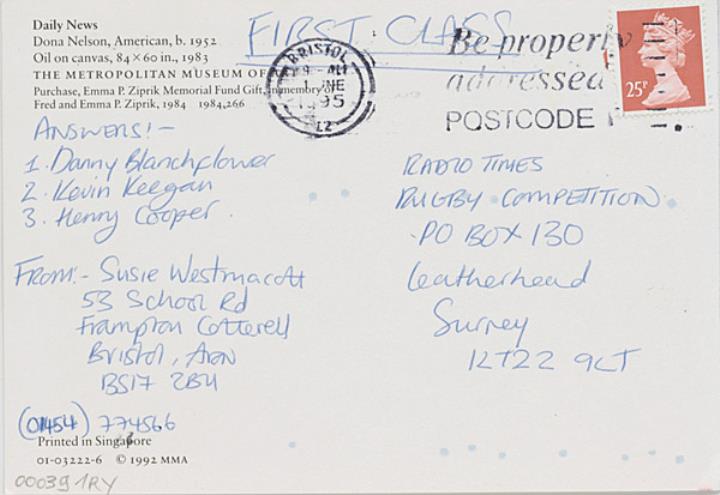 Daily News
Dona Nelson, American, b. 1952
Oil on canvas, 84 × 60 in., 1983
THE METROPOLITAN MUSEUM OF
Purchase, Emma P. Ziprik Memorial Fund Gift, in memory of
Fred and Emma P. Ziprik, 1984 1984.266
FIRST CLASS
BRISTOL
1995
L2
Be properly
addressed
POSTCODE
25P
ANSWERS!-
1. Danny Blanchflower
2. Kevin Keegan
3. Henry Cooper.
FROM:- Susie Westmacott
53 School Rd
Frampton Cotterell
Bristol, Avon
BS17 2BU
(01454) 774566
RADIO TIMES
RUGBY COMPETITION
PO BOX 130
Leatherhead
Surrey
KT22 9LT
Printed in Singapore
01-03222-6 © 1992 MMA
000391RY